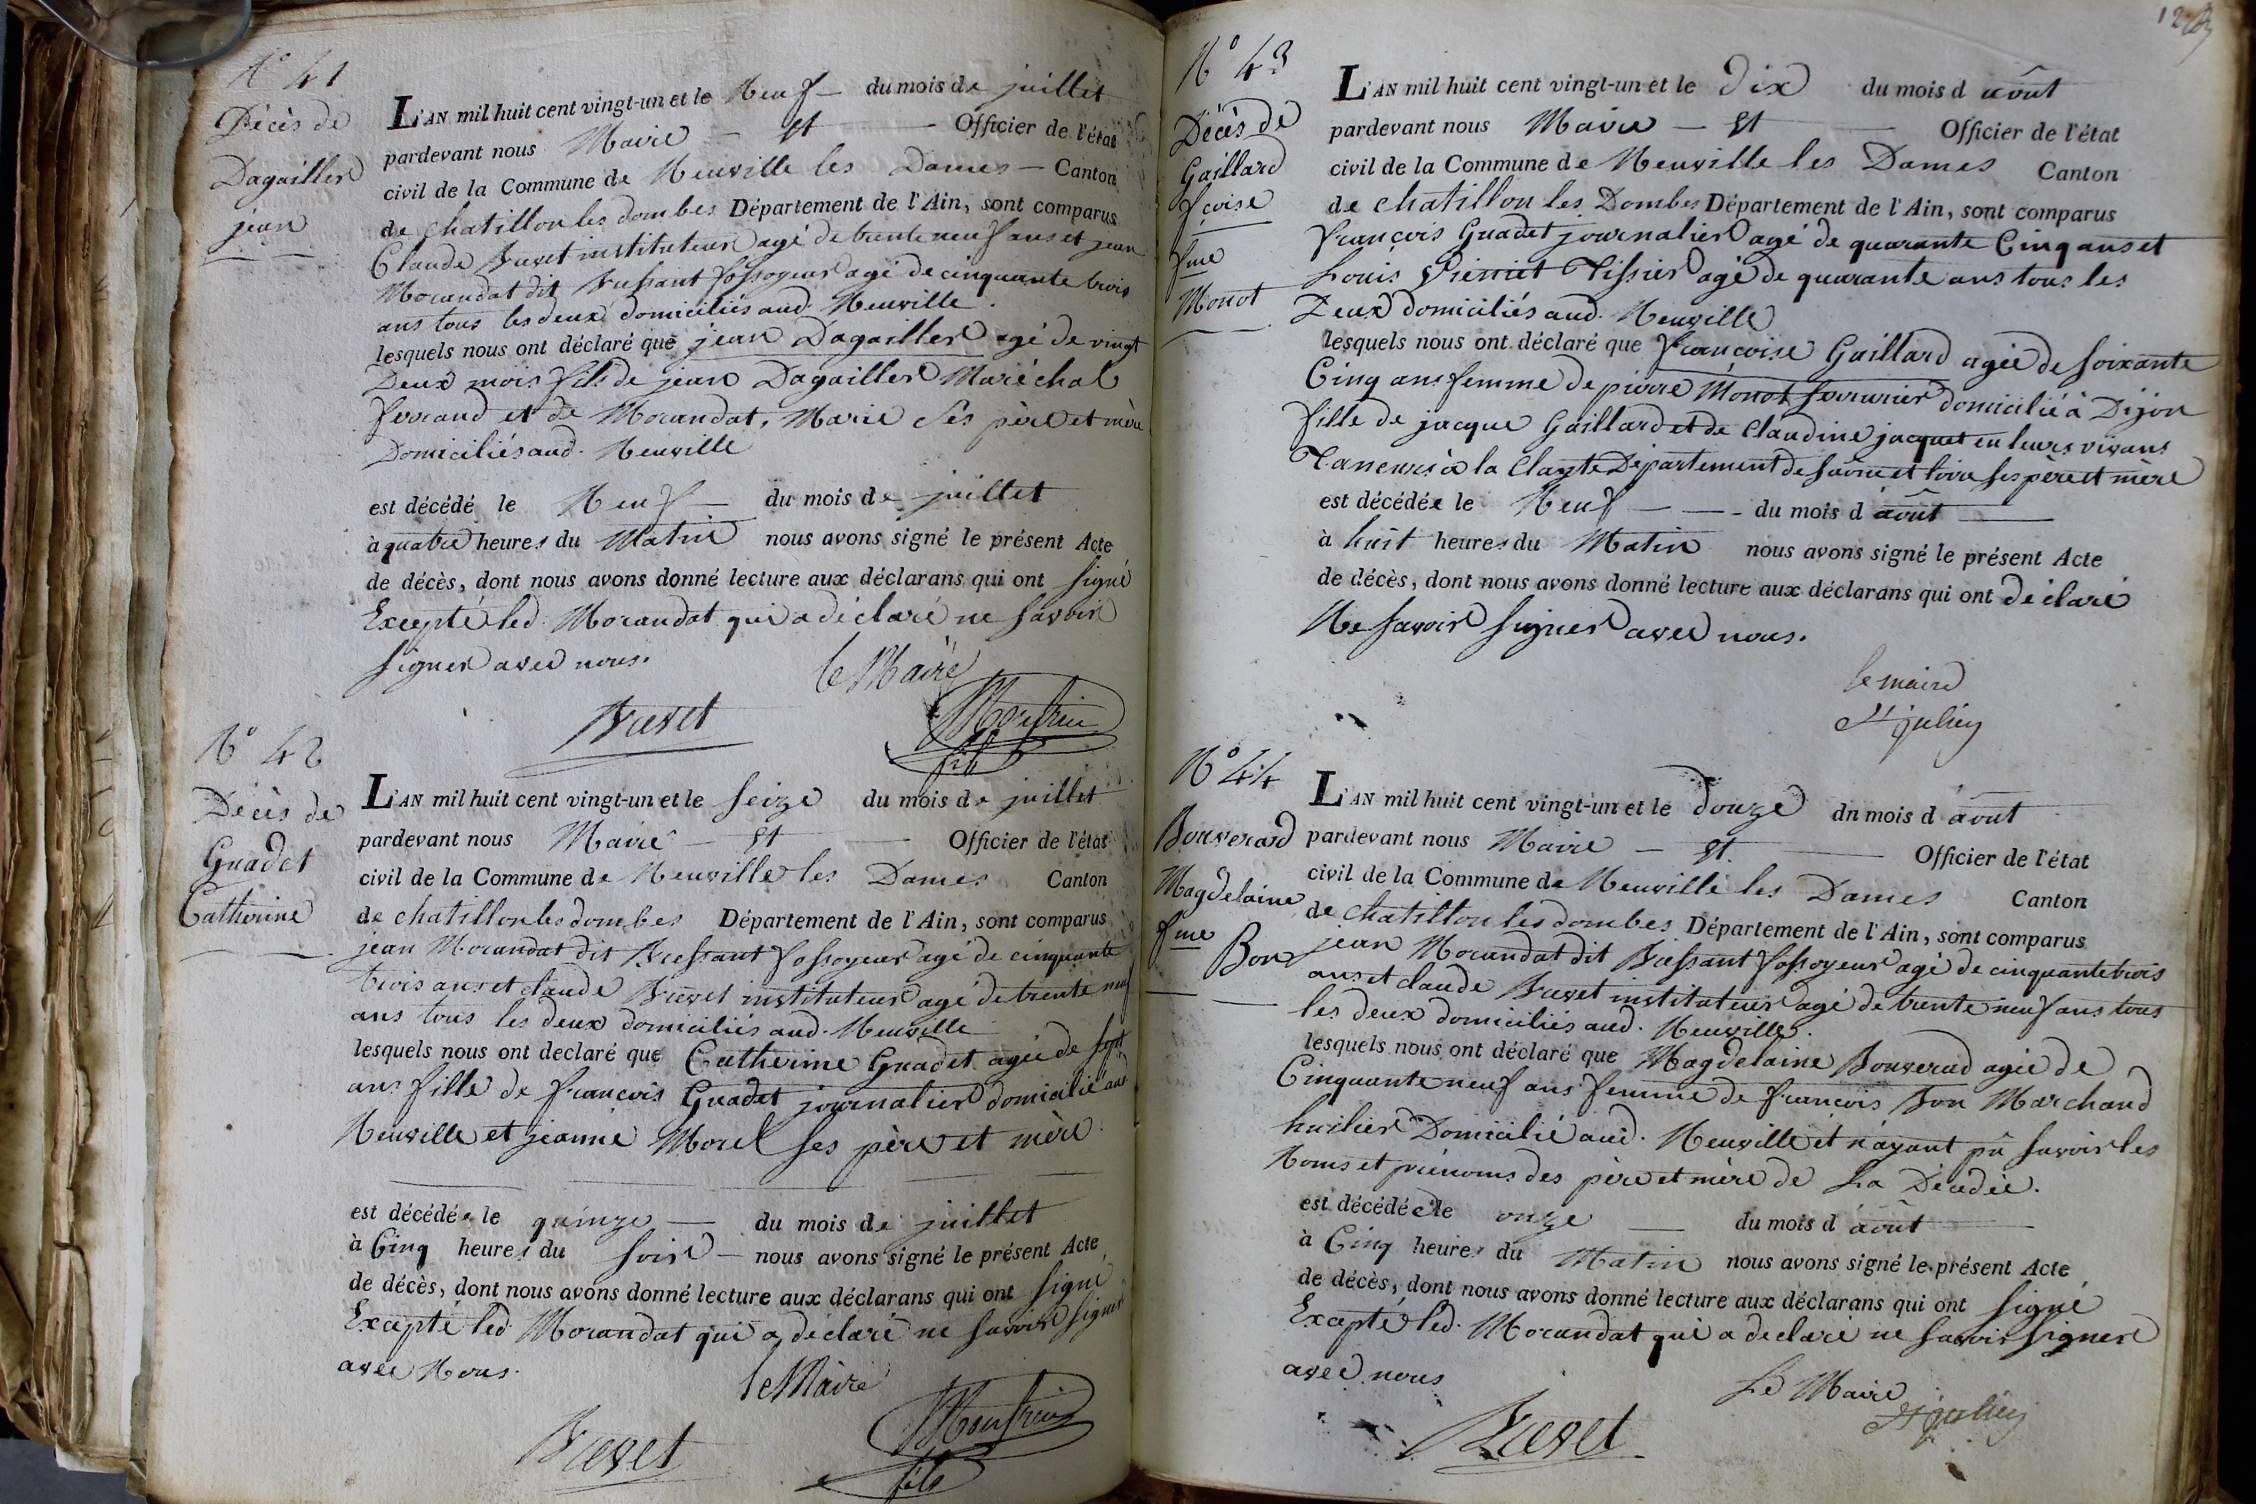 N° 41
Décès de
Dagallier
jean
L'AN mil huit cent vingt-un et le Neuf — du mois de juillet
pardevant nous Maire — et — Officier de l'état
civil de la Commune de Neuville les Dames — Canton
de chatillon les dombes Département de l'Ain, sont comparus
Claude Buvet instituteur agé de trente neuf ans et jean
Morandat dit Bressant fossoyeur agé de cinquante trois
ans tous les deux domiciliés aud. Neuville.
lesquels nous ont déclaré que jean Dagallier agé de vingt
Deux mois fils de jean Dagallier Maréchal
ferrand et de Morandat, Marie ses père et mère
Domiciliés aud. Neuville
est décédé le Neuf — du mois de juillet
à quatre heures du Matin nous avons signé le présent Acte
de décès, dont nous avons donné lecture aux déclarans qui ont signé
Excepté led. Morandat qui a déclaré ne savoir
signer avec nous.
le Maire
fils
N° 42
Décès de
Guadet
Catherine
L'AN mil huit cent vingt-un et le seize du mois de juillet
pardevant nous Maire — et — Officier de l'état
civil de la Commune de Neuville les Dames Canton
de chatillon les dombes Département de l'Ain, sont comparus
jean Morandat dit Bressant fossoyeur agé de cinquante
trois ans et claude Buvet instituteur agé de trente neuf
ans tous les deux domiciliés aud. Neuville
lesquels nous ont declaré que Catherine Guadet agée de sept
ans fille de françois Guadet journalier domicilié aud.
Neuville et jeanne Morel ses père et mère.
est décédée le quinze — du mois de juillet
à Cinq heures du soir — nous avons signé le présent Acte
de décès, dont nous avons donné lecture aux déclarans qui ont signé
Excepté led. Morandat qui a déclaré ne savoir signer
avec Nous.
le Maire
fils
N° 43
Décès de
Gaillard
fçoise
fme
Monot
L'AN mil huit cent vingt-un et le Dix du mois d août
pardevant nous Maire — et — Officier de l'état
civil de la Commune de Neuville les Dames Canton
de chatillon les Dombes Département de l'Ain, sont comparus
françois Guadet journalier agé de quarante Cinq ans et
Louis Pierriet Tissier agé de quarante ans tous les
Deux domiciliés aud. Neuville
lesquels nous ont déclaré que françoise Gaillard agée de soixante
Cinq ans femme de pierre Monot serrurier domicilié à Dijon
fille de jacque Gaillard et de Claudine jacquet en leurs vivans
Taneurs à la Clayte Département de saone et loire ses père et mère
est décédée le Neuf — du mois d août
à huit heures du Matin nous avons signé le présent Acte
de décès, dont nous avons donné lecture aux déclarans qui ont déclaré
Ne savoir signer avec nous.
le maire
St julien
N° 44
Bouverad
Magdelaine
fme
Bon
L'AN mil huit cent vingt-un et le Douze du mois d août
pardevant nous Maire — et — Officier de l'état
civil de la Commune de Neuville les Dames Canton
de chatillon les dombes Département de l'Ain, sont comparus
jean Morandat dit Bressant fossoyeur agé de cinquante trois
ans et claude Buvet instituteur agé de trente neuf ans tous
les deux domiciliés aud. Neuville.
lesquels nous ont déclaré que Magdelaine Bouverad agée de
Cinquante neuf ans femme de françois Bon Marchand
huilier Domicilié aud. Neuville et n'ayant pû savoir les
Noms et prénoms des père et mère de La Décédée.
est décédée le onze — du mois d août
à Cinq heures du Matin nous avons signé le présent Acte
de décès, dont nous avons donné lecture aux déclarans qui ont signé
Excepté led. Morandat qui a declaré ne savoir signer
avec nous
Le Maire
St julien